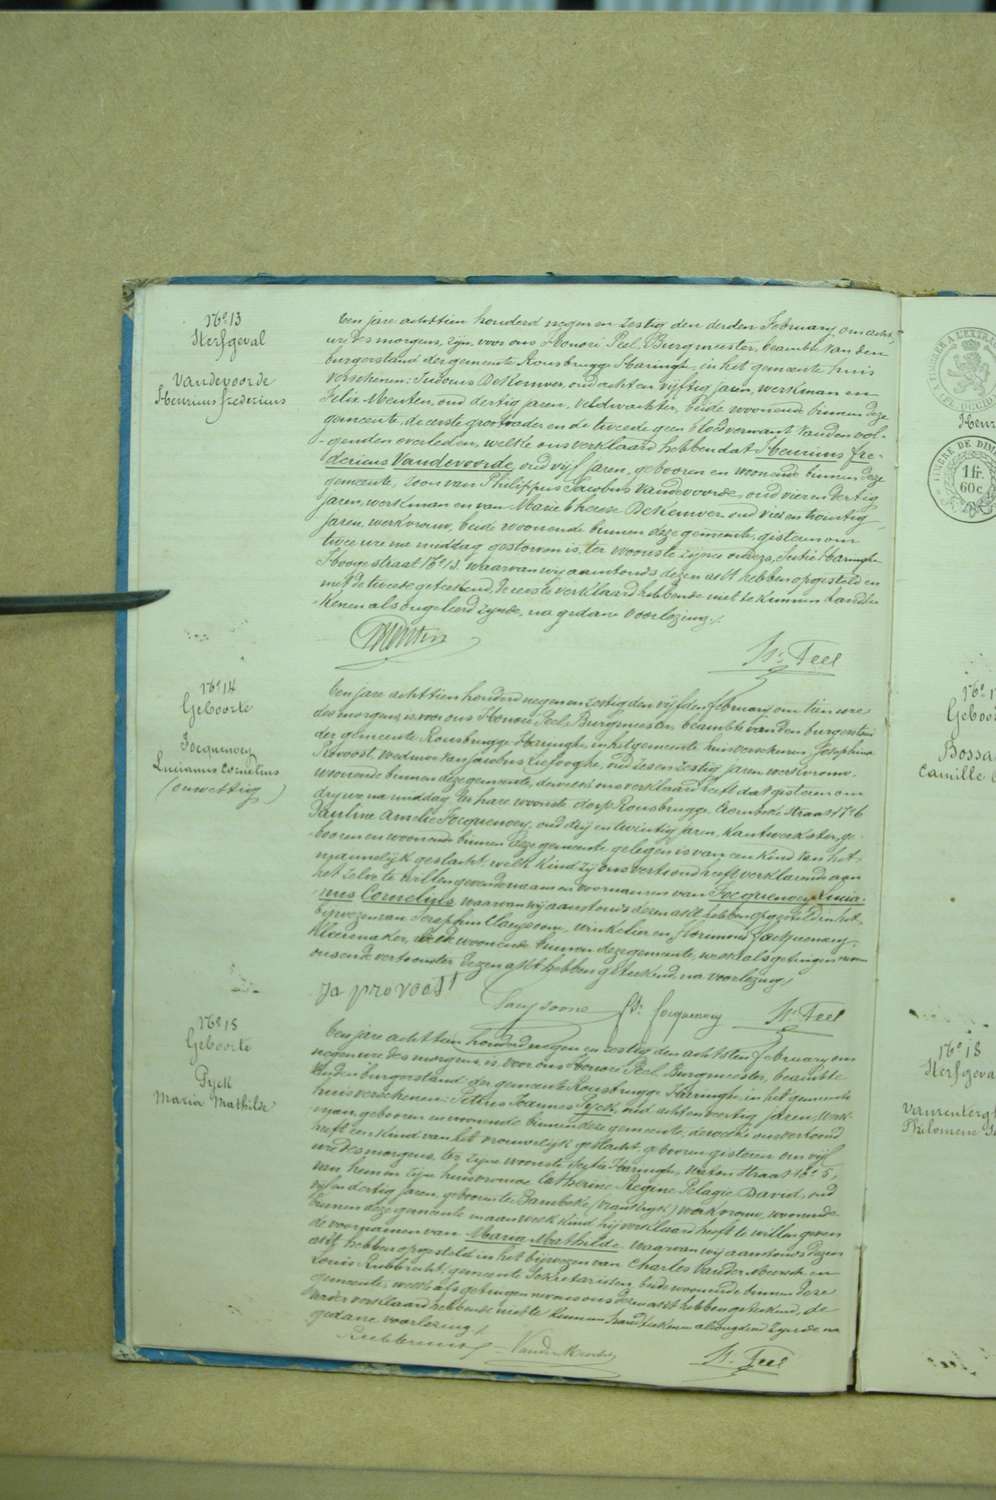 No 13
Sterfgeval
Vandevoorde
Henricus fredericus
Een jare achttien honderd negen en zestig den derden February, om acht
ure des morgens, zijn voor ons Honoré Peel, Burgmeester, beambte van den
burgerstand der gemeente Rousbrugge Haringhe, in het gemeente huis
verschenen: Judocus DeKeuwer, oud acht en vijftig jaren, werkman en
Felix Menten, oud dertig jaren, veldwachter, beide woonende binnen deze
gemeente, de eerste grootvader en de tweede geen bloedverwant van den vol-
genden overleden, welke ons verklaard hebben dat Henricus fre-
dericus Vandevoorde, oud vijf jaren, geboren en woonende binnen deze
gemeente, zoon van Philippus Jacobus Vandevoorde, oud vier en dertig
jaren, werkman en van Marie therese DeKeuwer oud vier en twintig
jaren, werkvrouw, beide woonende binnen deze gemeente, gisteren om
twee ure na middag gestorven is, ter woonste zijner ouders, Sectie Haringhe
Hooge straat No 13. waarvan wij aanstonds dezen akt hebben opgesteld en
met de tweede geteekend, de eerste verklaard hebbende niet te kunnen handtee-
kenen als ongeleerd zijnde, na gedane voorlezing.
Menten
Hré Peel
No 14
Geboorte
Jocquenoey
Lucianus Cornelius
(onwettig)
Een jare achttien honderd negen en zestig den vijfden february om tien ure
des morgens, is voor ons Honoré Peel, Burgmeester, beambte van den burgerstand
der gemeente Rousbrugge Haringhe, in het gemeente huis verschenen, Josephine
Provoost, weduwe van oud zes en zestig jaren, werkvrouw
woonende binnen deze gemeente, dewelke ons verklaard heeft dat gisteren om
drij ure na middag ter hare woonste dorp Rousbrugge, straat No 6
Pauline Amelie Jocquenoey, oud drij en twintig jaren, kantwerkster, ge-
boren en woonende binnen deze gemeente gelegen is van een kind van het
mannelijk geslacht, welk kind zij ons vertoond heeft verklarende aan
het zelve te willen geven de naam en voornamen van Jocquenoey Lucia-
nus Cornelius waarvan wij aanstonds dezen akt hebben opgesteld in het
bijwezen van Seraphin Claeysoone, winkelier en florimond Jocquenoey,
kleermaker, beide woonende binnen deze gemeente, welke als getuigen nevens
ons en de vertoonster dezen akt hebben geteekend, na voorlezing.
Ja provoost
Claeysoone
fd. Jocquenoey
Hré Peel
No 15
Geboorte
Pyck
Maria Mathilde
Een jare achttien honderd negen en zestig den achtsten february om
negen ure des morgens, is voor ons Honoré Peel Burgmeester, beambte
van den burgerstand der gemeente Rousbrugge Haringhe in het gemeente
huis verschenen: Petrus Joannes Pyck, oud acht en veertig jaren, werk-
man geboren en woonende binnen deze gemeente, dewelke ons vertoond
heeft een kind van het vrouwelijk geslacht, geboren gisteren om vijf
ure des morgens, ter zijne woonste Sectie Haringhe, straat No 5,
van hem en zijne huisvrouwe Catherine Regine Pelagie David, oud
vijf en dertig jaren, geboren te Bambeke (Vrankryk) werkvrouw, woonende
binnen deze gemeente en aan welk kind hij verklaard heeft te willen geven
de voornamen van Maria Mathilde. waarvan wij aanstonds dezen
akt hebben opgesteld in het bijwezen van Charles VanderMeersch en
Louis Rubbrecht, gemeente Sekretarissen, beide woonende binnen deze
gemeente, welke als getuigen nevens ons dezen akt hebben geteekend, de
vader verklaard hebbende niet te kunnen handteekenen als ongeleerd zijnde, na
gedane voorlezing.
Rubbrecht
VanderMeersch
Hré Peel
TIMBRE DE DIM
1 fr.
60 c
Henr
No 1
Geboor
Bossa
Camille
No 18
Sterfgeva
Vanrenterg
Philomene